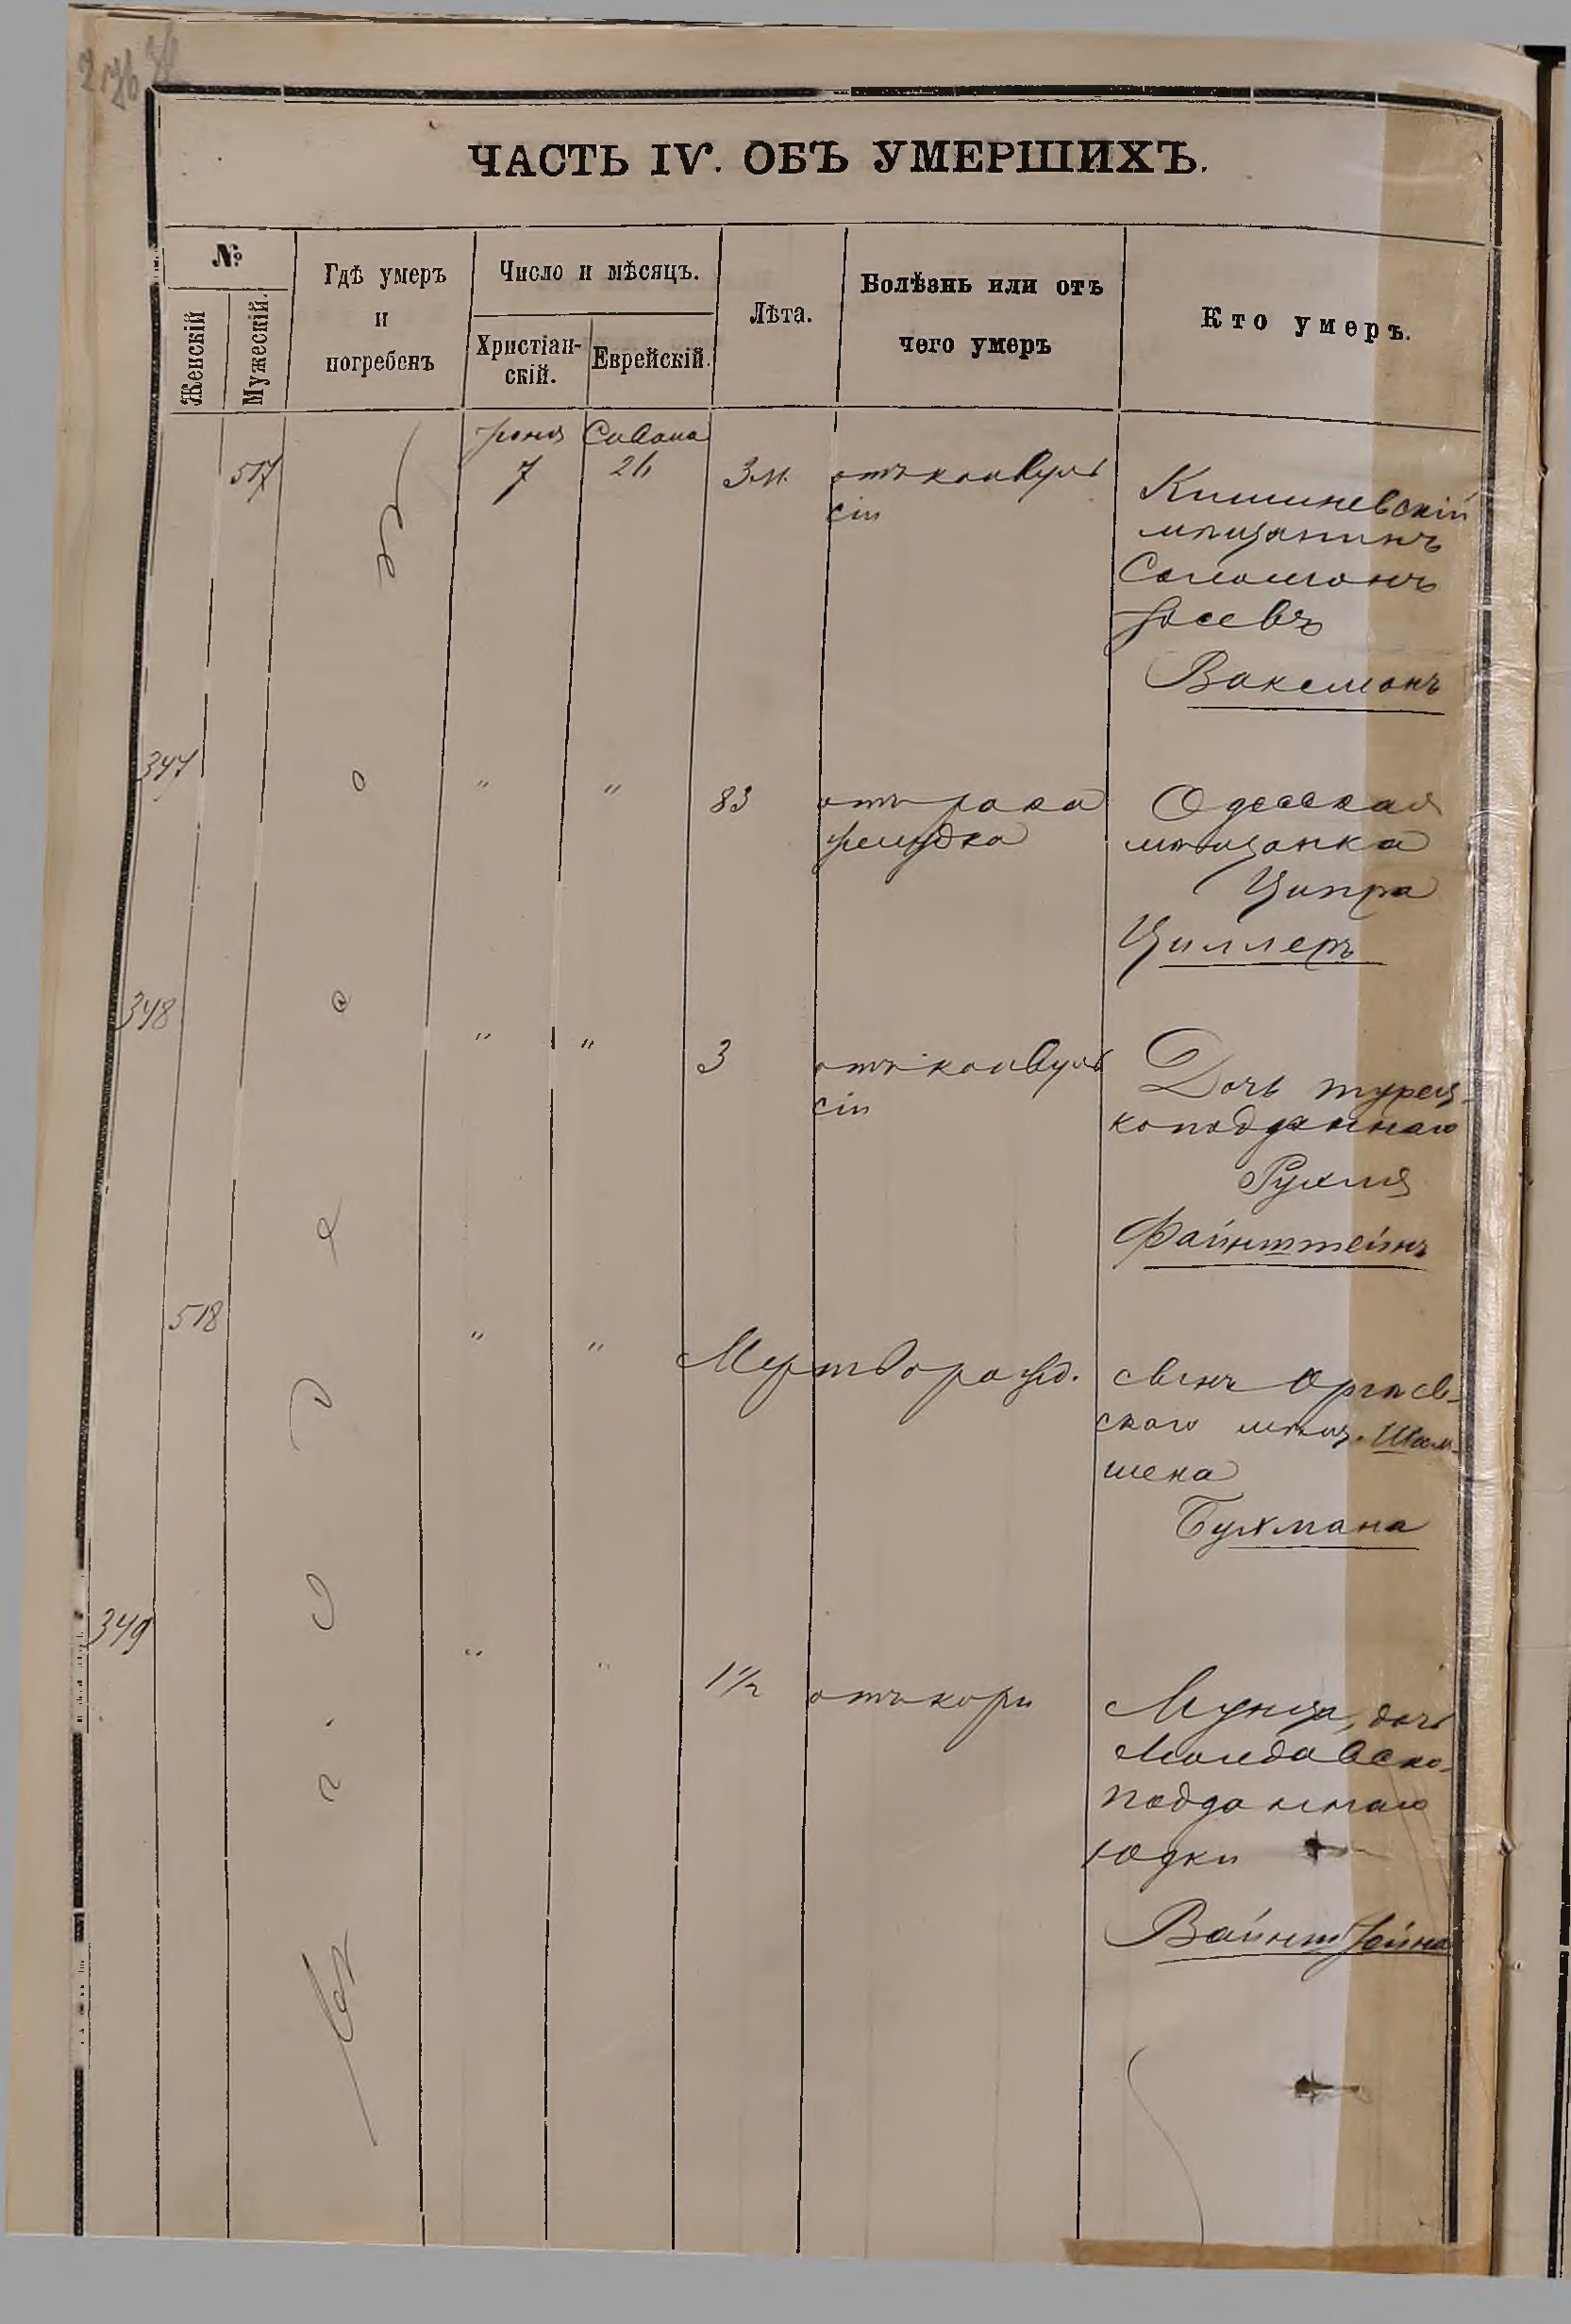 ЧАСТЬ IV. ОБЪ УМЕРШИХЪ.
№
Женскій
Мужескій.
Гдѣ умеръ
и
погребенъ
Число и мѣсяцъ.
Христіан-
скій.
Еврейскій.
Лѣта.
Болѣзнь или отъ
чего умеръ
Кто умеръ.
Іюня Сивана
517 7 26 3 м. отъ конвуль
сіи
Кишиневскій
мѣщанинъ
Соломонъ
Іосевъ
Ваксманъ
347 " " 83 отъ рака
желудка
Одесская
мѣщанка
Ципра
Циллеръ
348 " " 3 отъ конвуль
сіи
Дочь турец-
коподданнаго
Рухля
Файнштейнъ
518 " " Мертворожд.
сынъ Оргѣев-
скаго мѣщ. Шам-
шена
Бухмана
349 " " 1½ отъ кори
Мунца, дочь
Молдавско-
подданнаго
Юдки
Вайнштейна